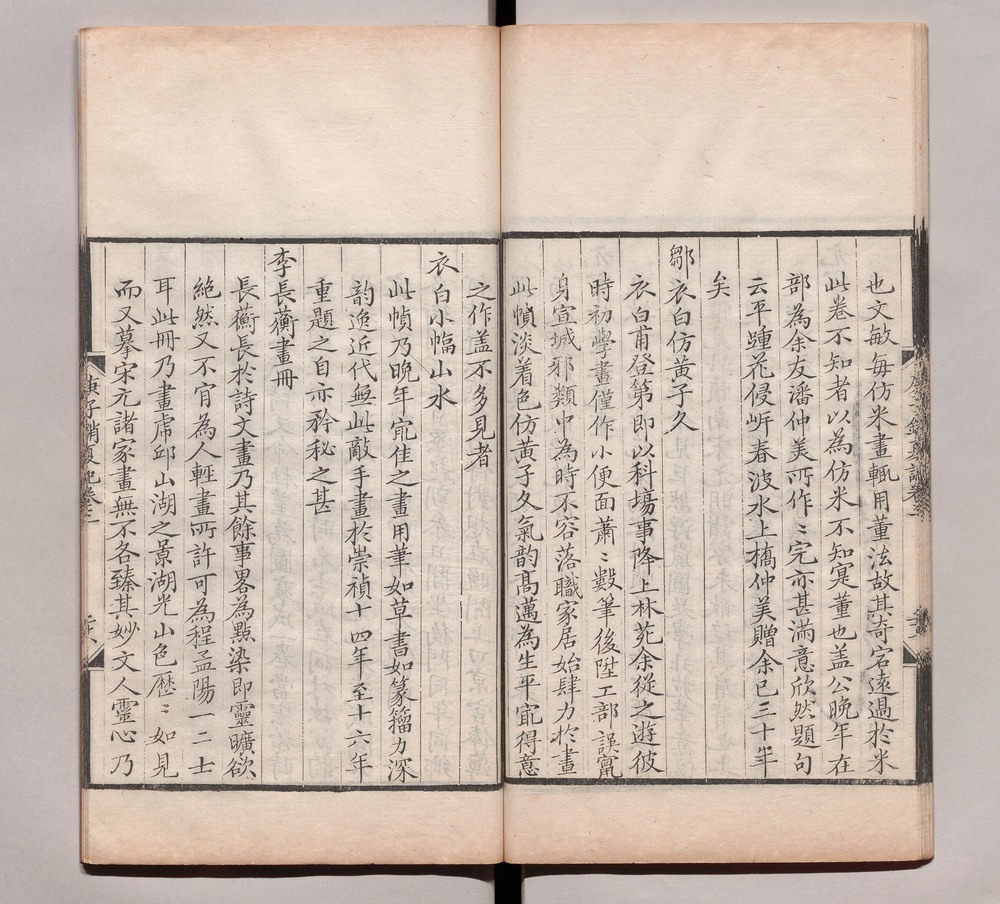 也文敏每仿米畫輒用董法故其奇宕遠過於米
此卷不知者以為仿米不知寔董也盖公晚年在
部為余友潘仲美所作〻完亦甚滿意欣然題句
云平踵花侵岍春波水上橋仲美贈余已三十年
矣
鄒衣白仿黃子久
衣白甫登第即以科場事降上林苑余從之遊彼
時初學畫僅作小便面蕭〻數筆後陞工部誤竄
身宣城邪類中為時不容落職家居始肆力於畫
此幀淡着色仿黃子久氣韵髙邁為生平㝡得意
之作盖不多見者
衣白小幅山水
此幀乃晚年㝡佳之畫用筆如草書如篆籀力深
韵逸近代無此敵手畫於崇禎十四年至十六年
重題之自亦矜秘之甚
李長蘅畫冊
長蘅長於詩文畫乃其餘事畧為點染即靈曠欲
絕然又不肯為人輕畫所許可為程孟陽一二士
耳此冊乃畫虎邱山湖之景湖光山色歴〻如見
而又摹宋元諸家畫無不各臻其妙文人靈心乃
庚子銷夏記卷三